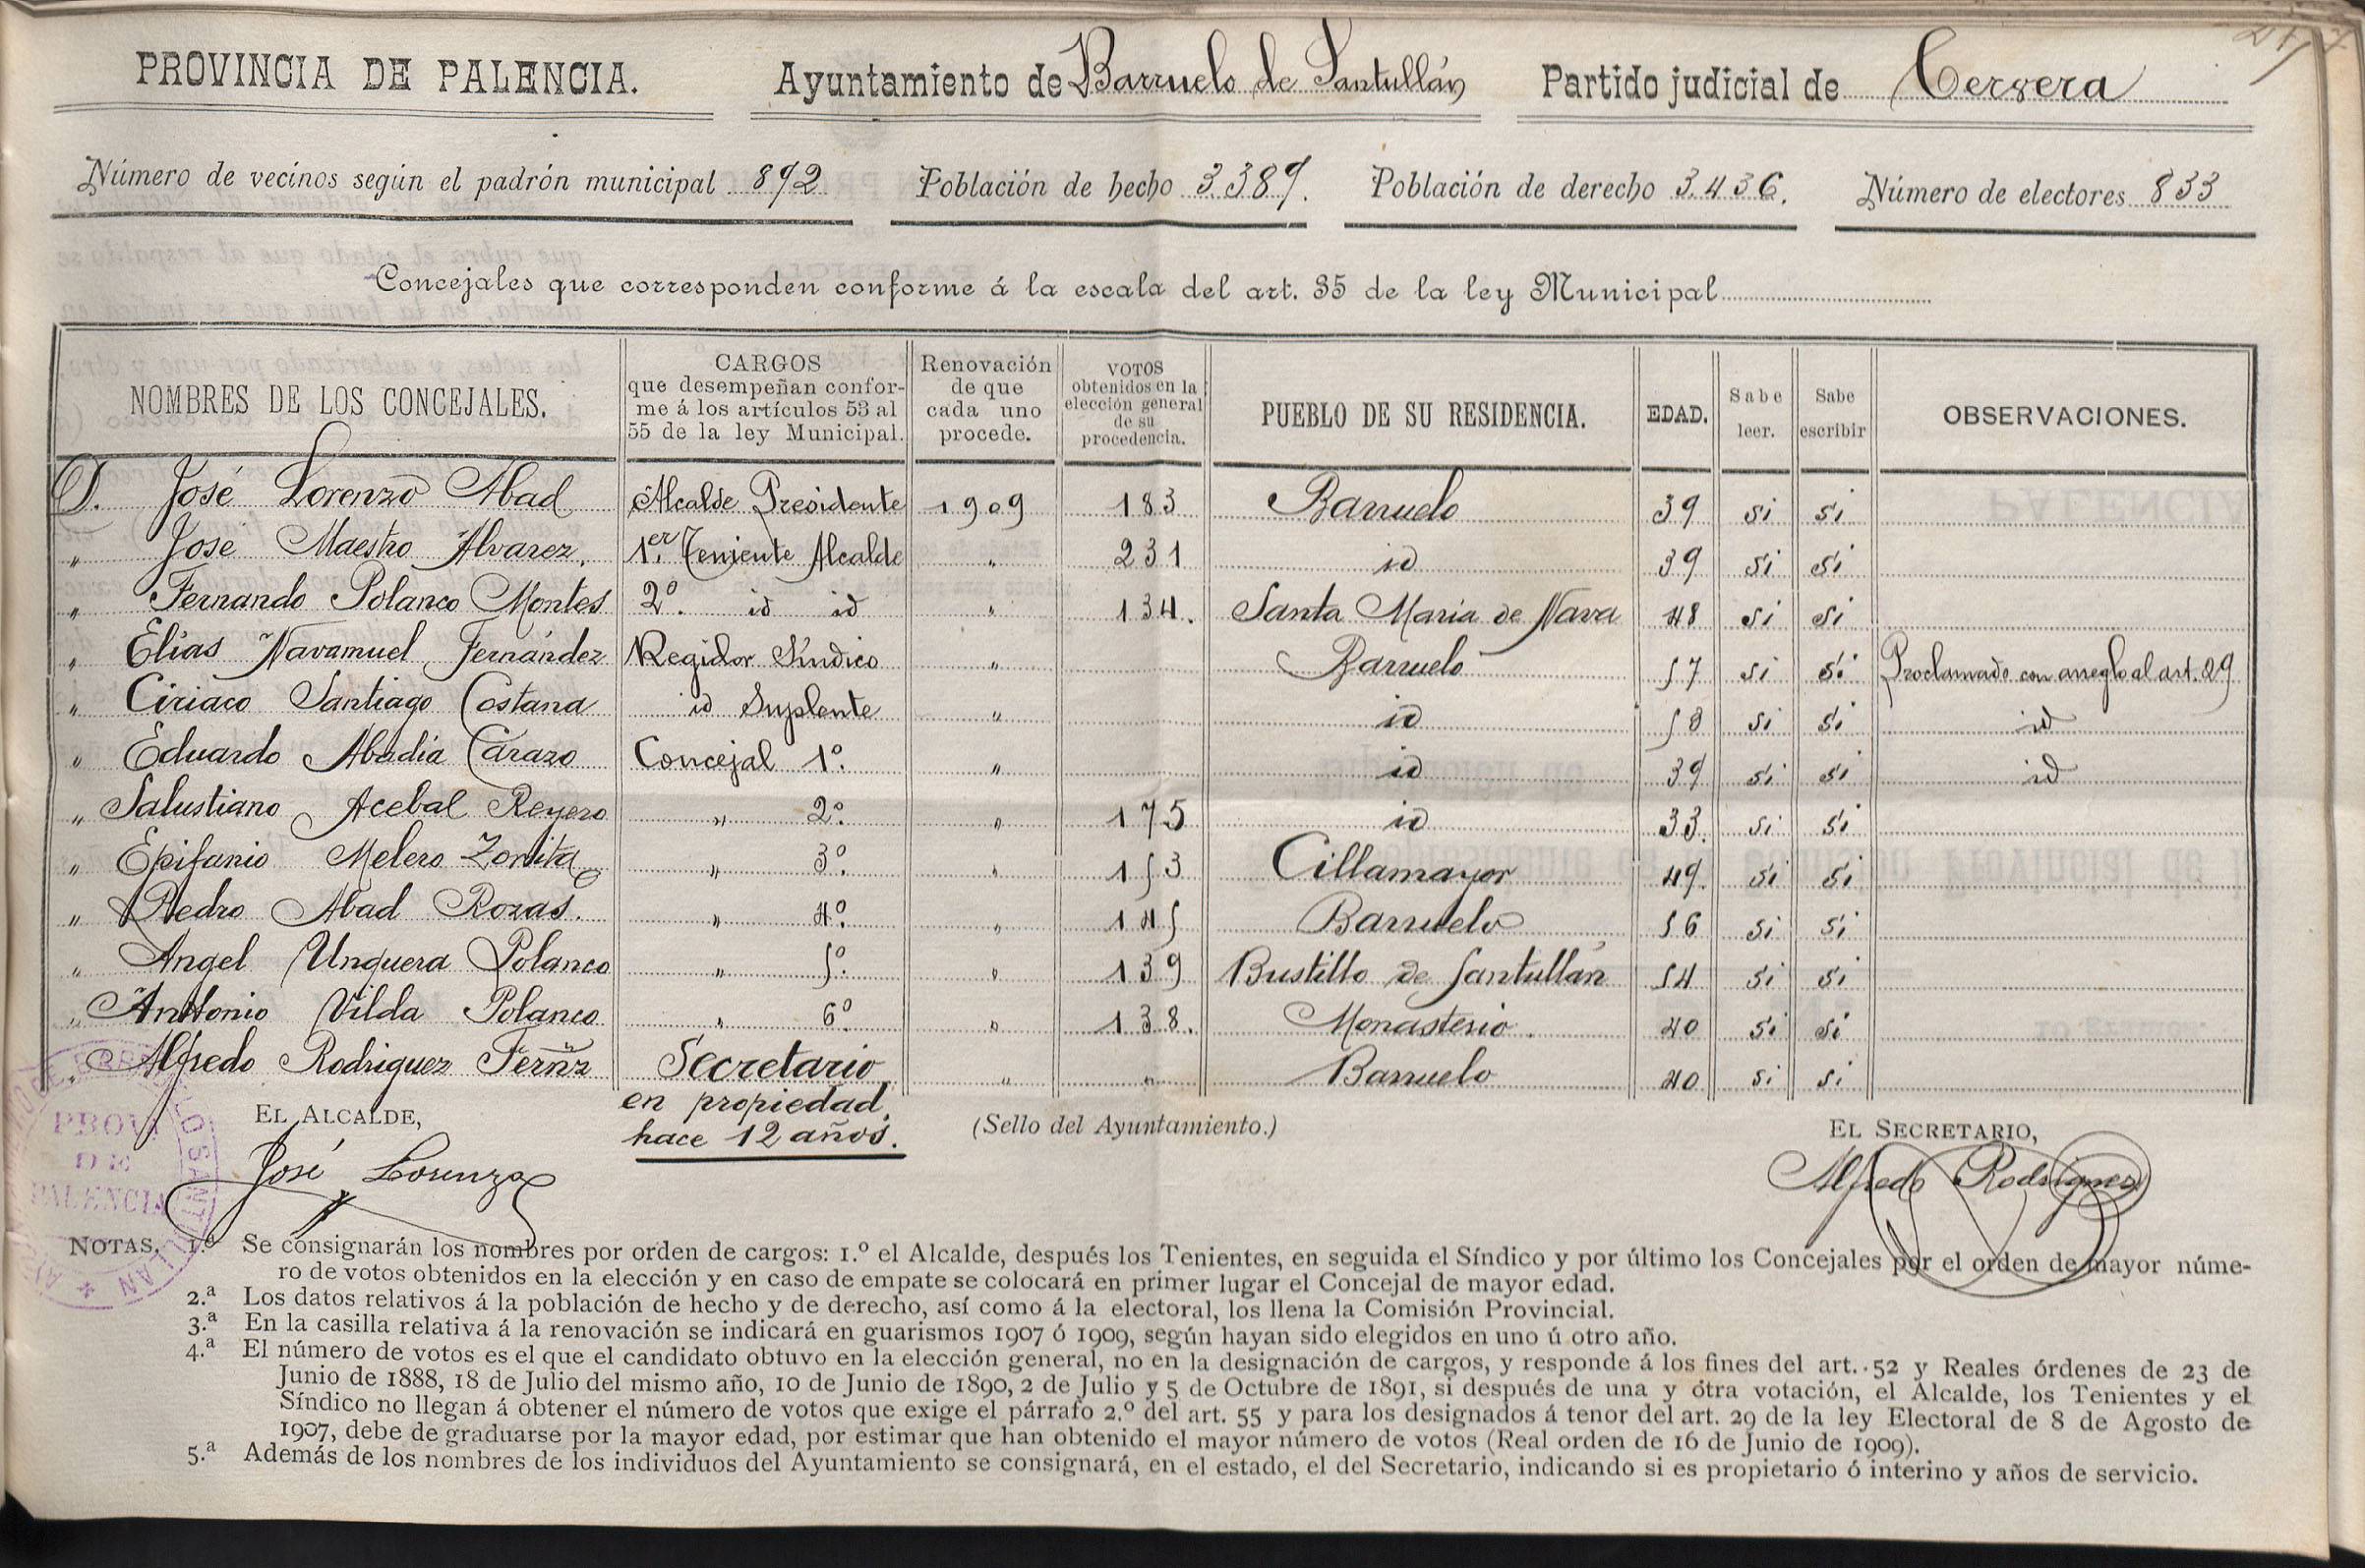 PROVINCIA DE PALENCIA. Ayuntamiento de Barruelo de Santullán Partido judicial de Cervera
Número de vecinos según el padrón municipal 892 Población de hecho 3.389. Población de derecho 3.436. Número de electores 833
Concejales que corresponden conforme á la escala del art. 35 de la ley Municipal
NOMBRES DE LOS CONCEJALES. CARGOS que desempeñan confor-me á los artículos 53 al 55 de la ley Municipal. Renovación de que cada uno procede. VOTOS obtenidos en la elección general de su procedencia. PUEBLO DE SU RESIDENCIA. EDAD. Sabe leer. Sabe escribir OBSERVACIONES.
D. José Lorenzo Abad Alcalde Presidente 1909 183 Barruelo 39 si si
" José Maestro Alvarez. 1er. Teniente Alcalde " 231 id 39 si si
" Fernando Polanco Montes 2º. id id " 134. Santa Maria de Nava 48 si si
" Elías Navamuel Fernández Regidor Síndico " Barruelo 57 si si Proclamado con arreglo al art. 29
" Ciriaco Santiago Costana id Suplente " id 58 si si id
" Eduardo Abadía Carazo Concejal 1º. " id 39 si si id
" Salustiano Acebal Reyero " 2º. " 175 id 33. si si
" Epifanio Melero Zorita " 3º. " 153 Cillamayor 49. si si
" Pedro Abad Rozas. " 4º. " 145 Barruelo 56 si si
" Angel Unquera Polanco " 5º. " 139 Bustillo de Santullán 54 si si
" Antonio Vilda Polanco " 6º. " 138. Monasterio. 40 si si
" Alfredo Rodriguez Ferñz Secretario " " Barruelo 40 si si
en propiedad,
hace 12 años.
EL ALCALDE, (Sello del Ayuntamiento.) EL SECRETARIO,
José Lorenzo Alfredo Rodríguez
PROV. DE PALENCIA
NOTAS. 1.ª Se consignarán los nombres por orden de cargos: 1.º el Alcalde, después los Tenientes, en seguida el Síndico y por último los Concejales por el orden de mayor núme-
ro de votos obtenidos en la elección y en caso de empate se colocará en primer lugar el Concejal de mayor edad.
2.ª Los datos relativos á la población de hecho y de derecho, así como á la electoral, los llena la Comisión Provincial.
3.ª En la casilla relativa á la renovación se indicará en guarismos 1907 ó 1909, según hayan sido elegidos en uno ú otro año.
4.ª El número de votos es el que el candidato obtuvo en la elección general, no en la designación de cargos, y responde á los fines del art. 52 y Reales órdenes de 23 de
Junio de 1888, 18 de Julio del mismo año, 10 de Junio de 1890, 2 de Julio y 5 de Octubre de 1891, si después de una y otra votación, el Alcalde, los Tenientes y el
Síndico no llegan á obtener el número de votos que exige el párrafo 2.º del art. 55 y para los designados á tenor del art. 29 de la ley Electoral de 8 de Agosto de
1907, debe de graduarse por la mayor edad, por estimar que han obtenido el mayor número de votos (Real orden de 16 de Junio de 1909).
5.ª Además de los nombres de los individuos del Ayuntamiento se consignará, en el estado, el del Secretario, indicando si es propietario ó interino y años de servicio.